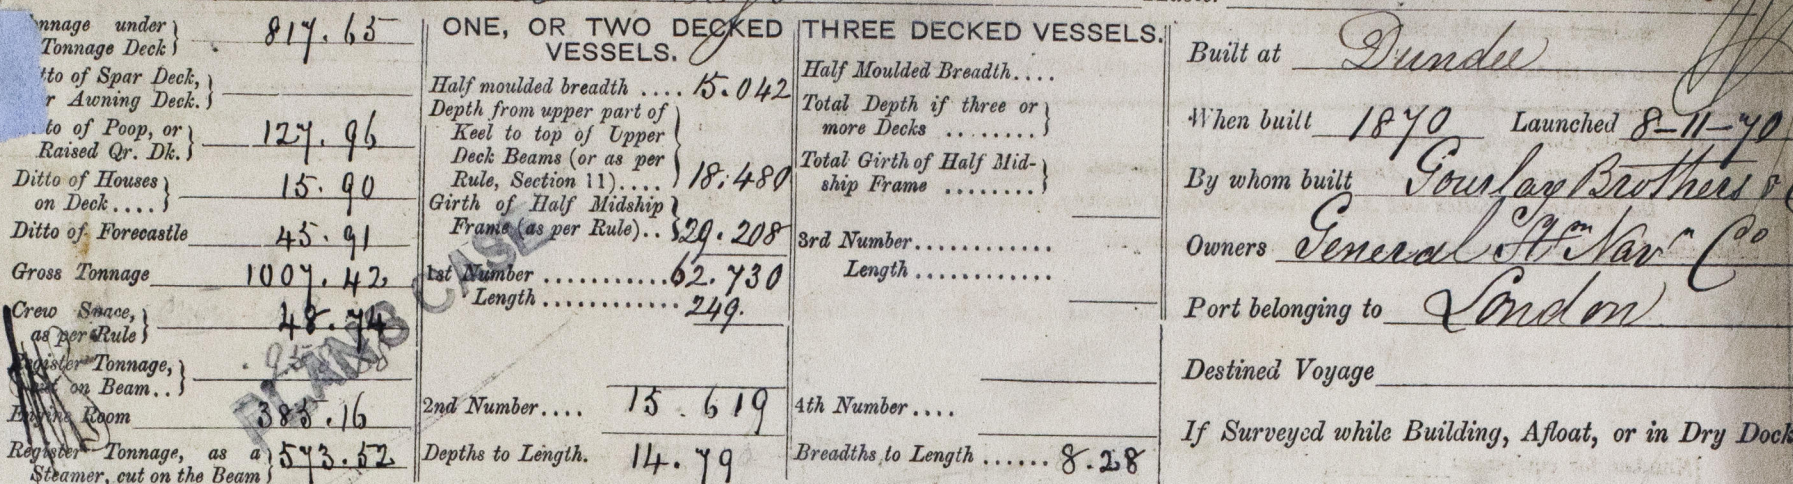 Tonnage under
Tonnage Deck } 817.65
Ditto of Spar Deck,
or Awning Deck. }
Ditto of Poop, or
Raised Qr. Dk. } 127.96
Ditto of Houses
on Deck .... } 15.90
Ditto of Forecastle 45.91
Gross Tonnage 1007.42
Crew Space,
as per Rule } 48.74
Register Tonnage,
cut on Beam .. }
Engine Room 385.16
Register Tonnage, as a
Steamer, cut on the Beam } 573.52
PLANS CASE
ONE, OR TWO DECKED
VESSELS.
Half moulded breadth .... 15.042
Depth from upper part of
Keel to top of Upper
Deck Beams (or as per
Rule, Section 11) .... } 18.480
Girth of Half Midship
Frame (as per Rule) .. } 29.208
1st Number ............ 62.730
Length ............ 249.
2nd Number .... 15.619
Depths to Length. 14.79
THREE DECKED VESSELS.
Half Moulded Breadth....
Total Depth if three or
more Decks ........ }
Total Girth of Half Mid-
ship Frame ........ }
3rd Number............
Length ............
4th Number ....
Breadths to Length ...... 8.28
Built at Dundee
When built 1870 Launched 8-11-70
By whom built Gourlay Brothers &
Owners General Stm Navn Co
Port belonging to London
Destined Voyage
If Surveyed while Building, Afloat, or in Dry Dock